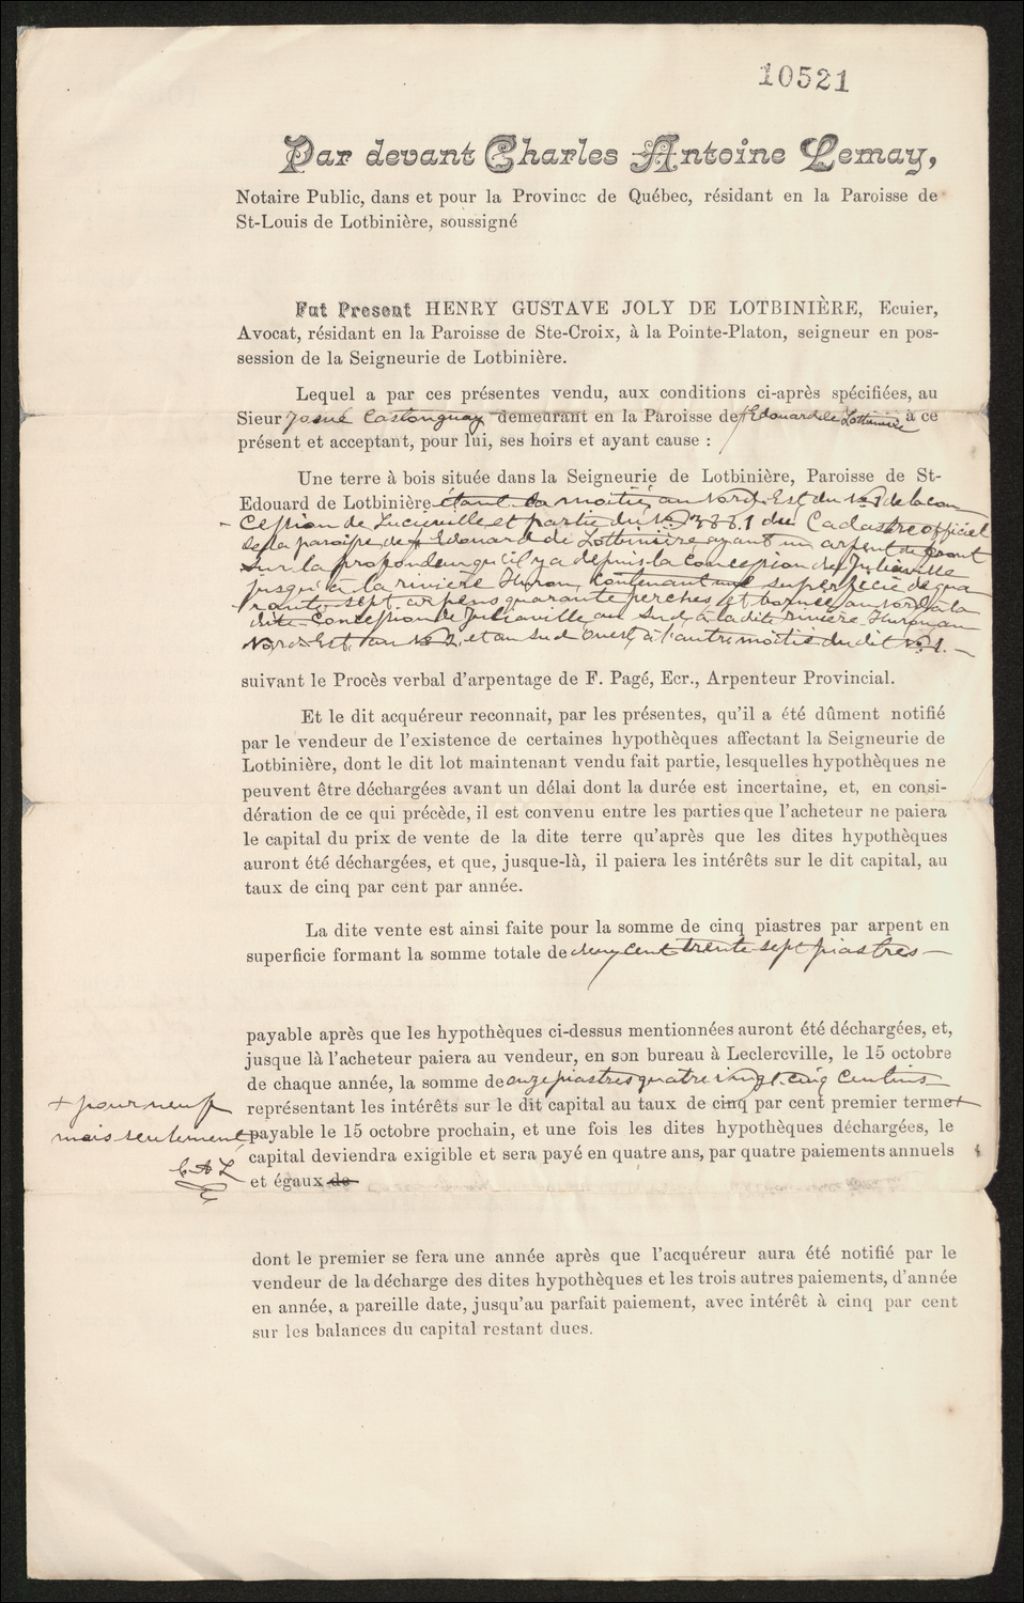 10521
Par devant Charles Antoine Lemay,
Notaire Public, dans et pour la Province de Québec, résidant en la Paroisse de
St-Louis de Lotbinière, soussigné
Fut Present HENRY GUSTAVE JOLY DE LOTBINIÈRE, Ecuier,
Avocat, résidant en la Paroisse de Ste-Croix, à la Pointe-Platon, seigneur en pos-
session de la Seigneurie de Lotbinière.
Lequel a par ces présentes vendu, aux conditions ci-après spécifiées, au
Sieur Josué Castonguay demeurant en la Paroisse de Edouard de Lotbinière à ce
présent et acceptant, pour lui, ses hoirs et ayant cause :
Une terre à bois située dans la Seigneurie de Lotbinière, Paroisse de St-
Edouard de Lotbinière étant la moitié au Nord Est du No 1 de la con
cession de Lucieville et partie du No 388.1 du Cadastre officiel
de la paroisse de Edouard de Lotbinière ayant un arpent de front
sur la profondeur qu'il y a depuis la concession de Juliaville
jusqu'à la rivière Huron, contenant une superficie de qua
rante sept arpens quarante perches et bornée au Nord à la
dite Concession de Juliaville au Sud à la dite rivière Huron au
Nord Est au No 2. et au Sud Ouest à l'autre moitié du dit No 1. —
suivant le Procès verbal d'arpentage de F. Pagé, Ecr., Arpenteur Provincial.
Et le dit acquéreur reconnait, par les présentes, qu'il a été dûment notifié
par le vendeur de l'existence de certaines hypothèques affectant la Seigneurie de
Lotbinière, dont le dit lot maintenant vendu fait partie, lesquelles hypothèques ne
peuvent être déchargées avant un délai dont la durée est incertaine, et, en consi-
dération de ce qui précède, il est convenu entre les parties que l'acheteur ne paiera
le capital du prix de vente de la dite terre qu'après que les dites hypothèques
auront été déchargées, et que, jusque-là, il paiera les intérêts sur le dit capital, au
taux de cinq par cent par année.
La dite vente est ainsi faite pour la somme de cinq piastres par arpent en
superficie formant la somme totale de deux cent trente sept piastres —
payable après que les hypothèques ci-dessus mentionnées auront été déchargées, et,
jusque là l'acheteur paiera au vendeur, en son bureau à Leclercville, le 15 octobre
de chaque année, la somme de onze piastres quatre vingt cinq centins
représentant les intérêts sur le dit capital au taux de cinq par cent premier terme +
+ pour neuf
mois seulement
C A L
payable le 15 octobre prochain, et une fois les dites hypothèques déchargées, le
capital deviendra exigible et sera payé en quatre ans, par quatre paiements annuels
et égaux de
dont le premier se fera une année après que l'acquéreur aura été notifié par le
vendeur de la décharge des dites hypothèques et les trois autres paiements, d'année
en année, a pareille date, jusqu'au parfait paiement, avec intérêt à cinq par cent
sur les balances du capital restant dues.